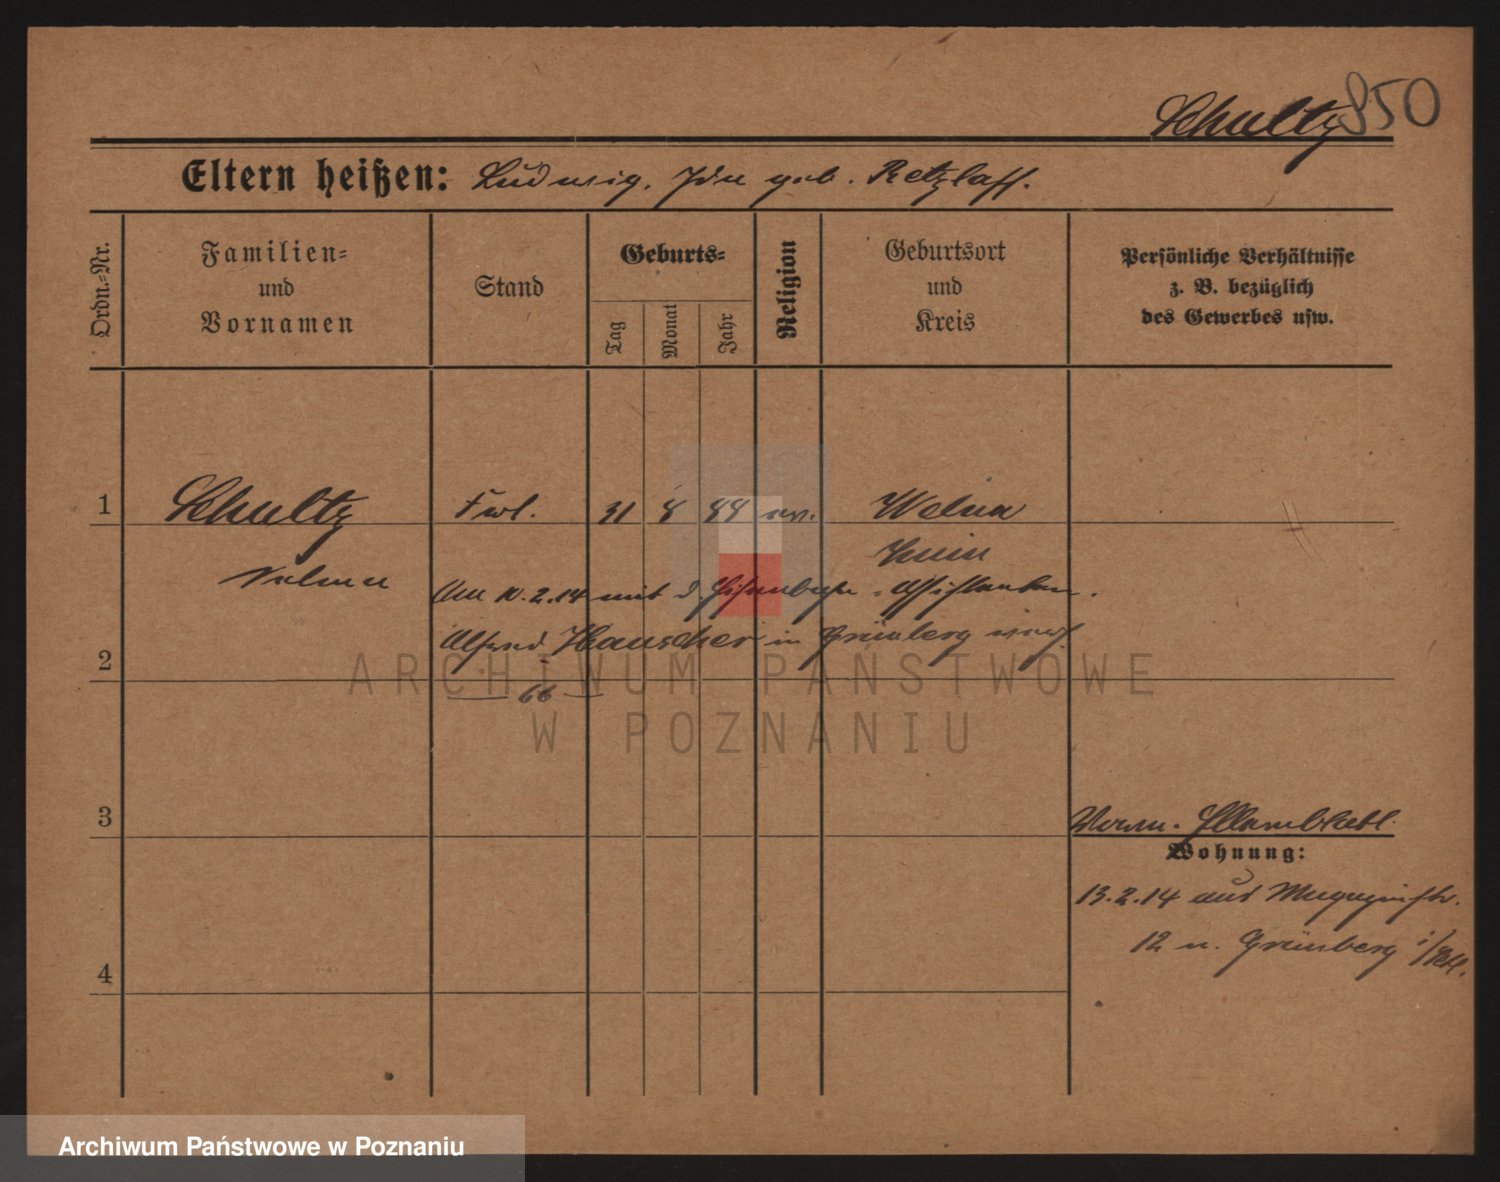 Schultz 850
Eltern heißen: Ludwig, Ida geb. Retzlaff.
Ordn.-Nr.
Familien- und Vornamen
Stand
Geburts-
Tag
Monat
Jahr
Religion
Geburtsort und Kreis
Persönliche Verhältnisse z. B. bezüglich des Gewerbes usw.
1 Schultz Frl. 31 8 88 ev. Welna
Znin
Am 10.2.14 mit d. Eisenbahn-Assistenten
Alfred Hauscher in Grünberg verh.
2
66
3
Wohnung:
13.2.14 aus Magazinstr.
12 n. Grünberg i/Schl.
4
ARCHIWUM PAŃSTWOWE
W POZNANIU
Archiwum Państwowe w Poznaniu